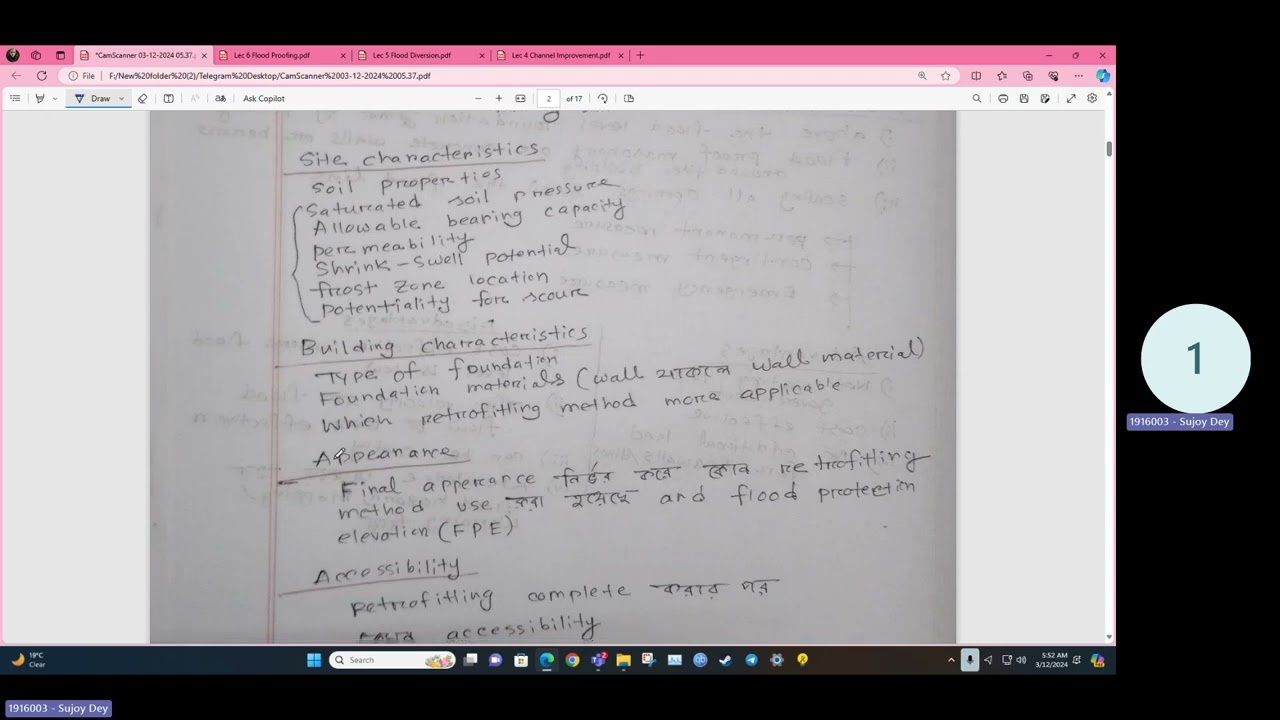 *CamScanner 03-12-2024 05.37.pdf
Lec 6 Flood Proofing.pdf
Lec 5 Flood Diversion.pdf
Lec 4 Channel Improvement.pdf
File F:/New%20folder%20(2)/Telegram%20Desktop/CamScanner%2003-12-2024%2005.37.pdf
Draw
Ask Copilot
2 of 17
Site characteristics
Soil properties
Saturated soil pressure
Allowable bearing capacity
permeability
Shrink-Swell potential
frost zone location
potentiality for scour
Building characteristics
Type of foundation
Foundation materials (wall থাকলে wall material)
Which retrofitting method more applicable
Appearance
Final apperance নির্ভর করে কোন retrofitting
method use করা হয়েছে and flood protection
elevation (FPE)
Accessibility
Retrofitting complete করার পর
accessibility
1
1916003 - Sujoy Dey
19°C
Clear
Search
5:52 AM
3/12/2024
1916003 - Sujoy Dey